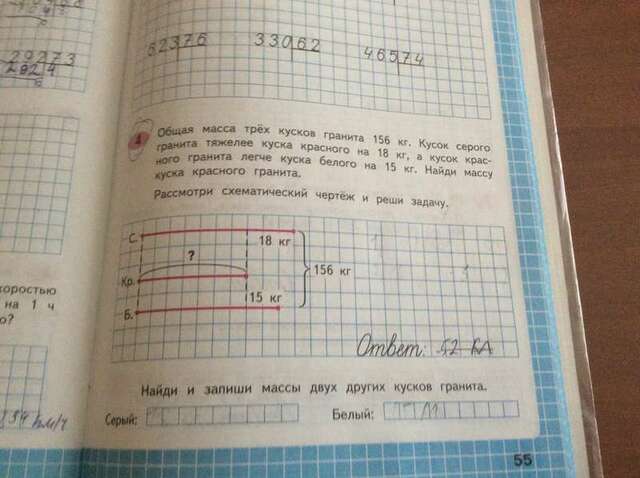 29273
2924
62376 33062 46574
4 Общая масса трёх кусков гранита 156 кг. Кусок серого
гранита тяжелее куска красного на 18 кг, а кусок крас-
ного гранита легче куска белого на 15 кг. Найди массу
куска красного гранита.
Рассмотри схематический чертёж и реши задачу.
С.
18 кг
?
Кр.
156 кг
15 кг
Б.
Ответ: 52
Найди и запиши массы двух других кусков гранита.
Серый: Белый:
скоростью
на 1 ч
о?
км/ч
55